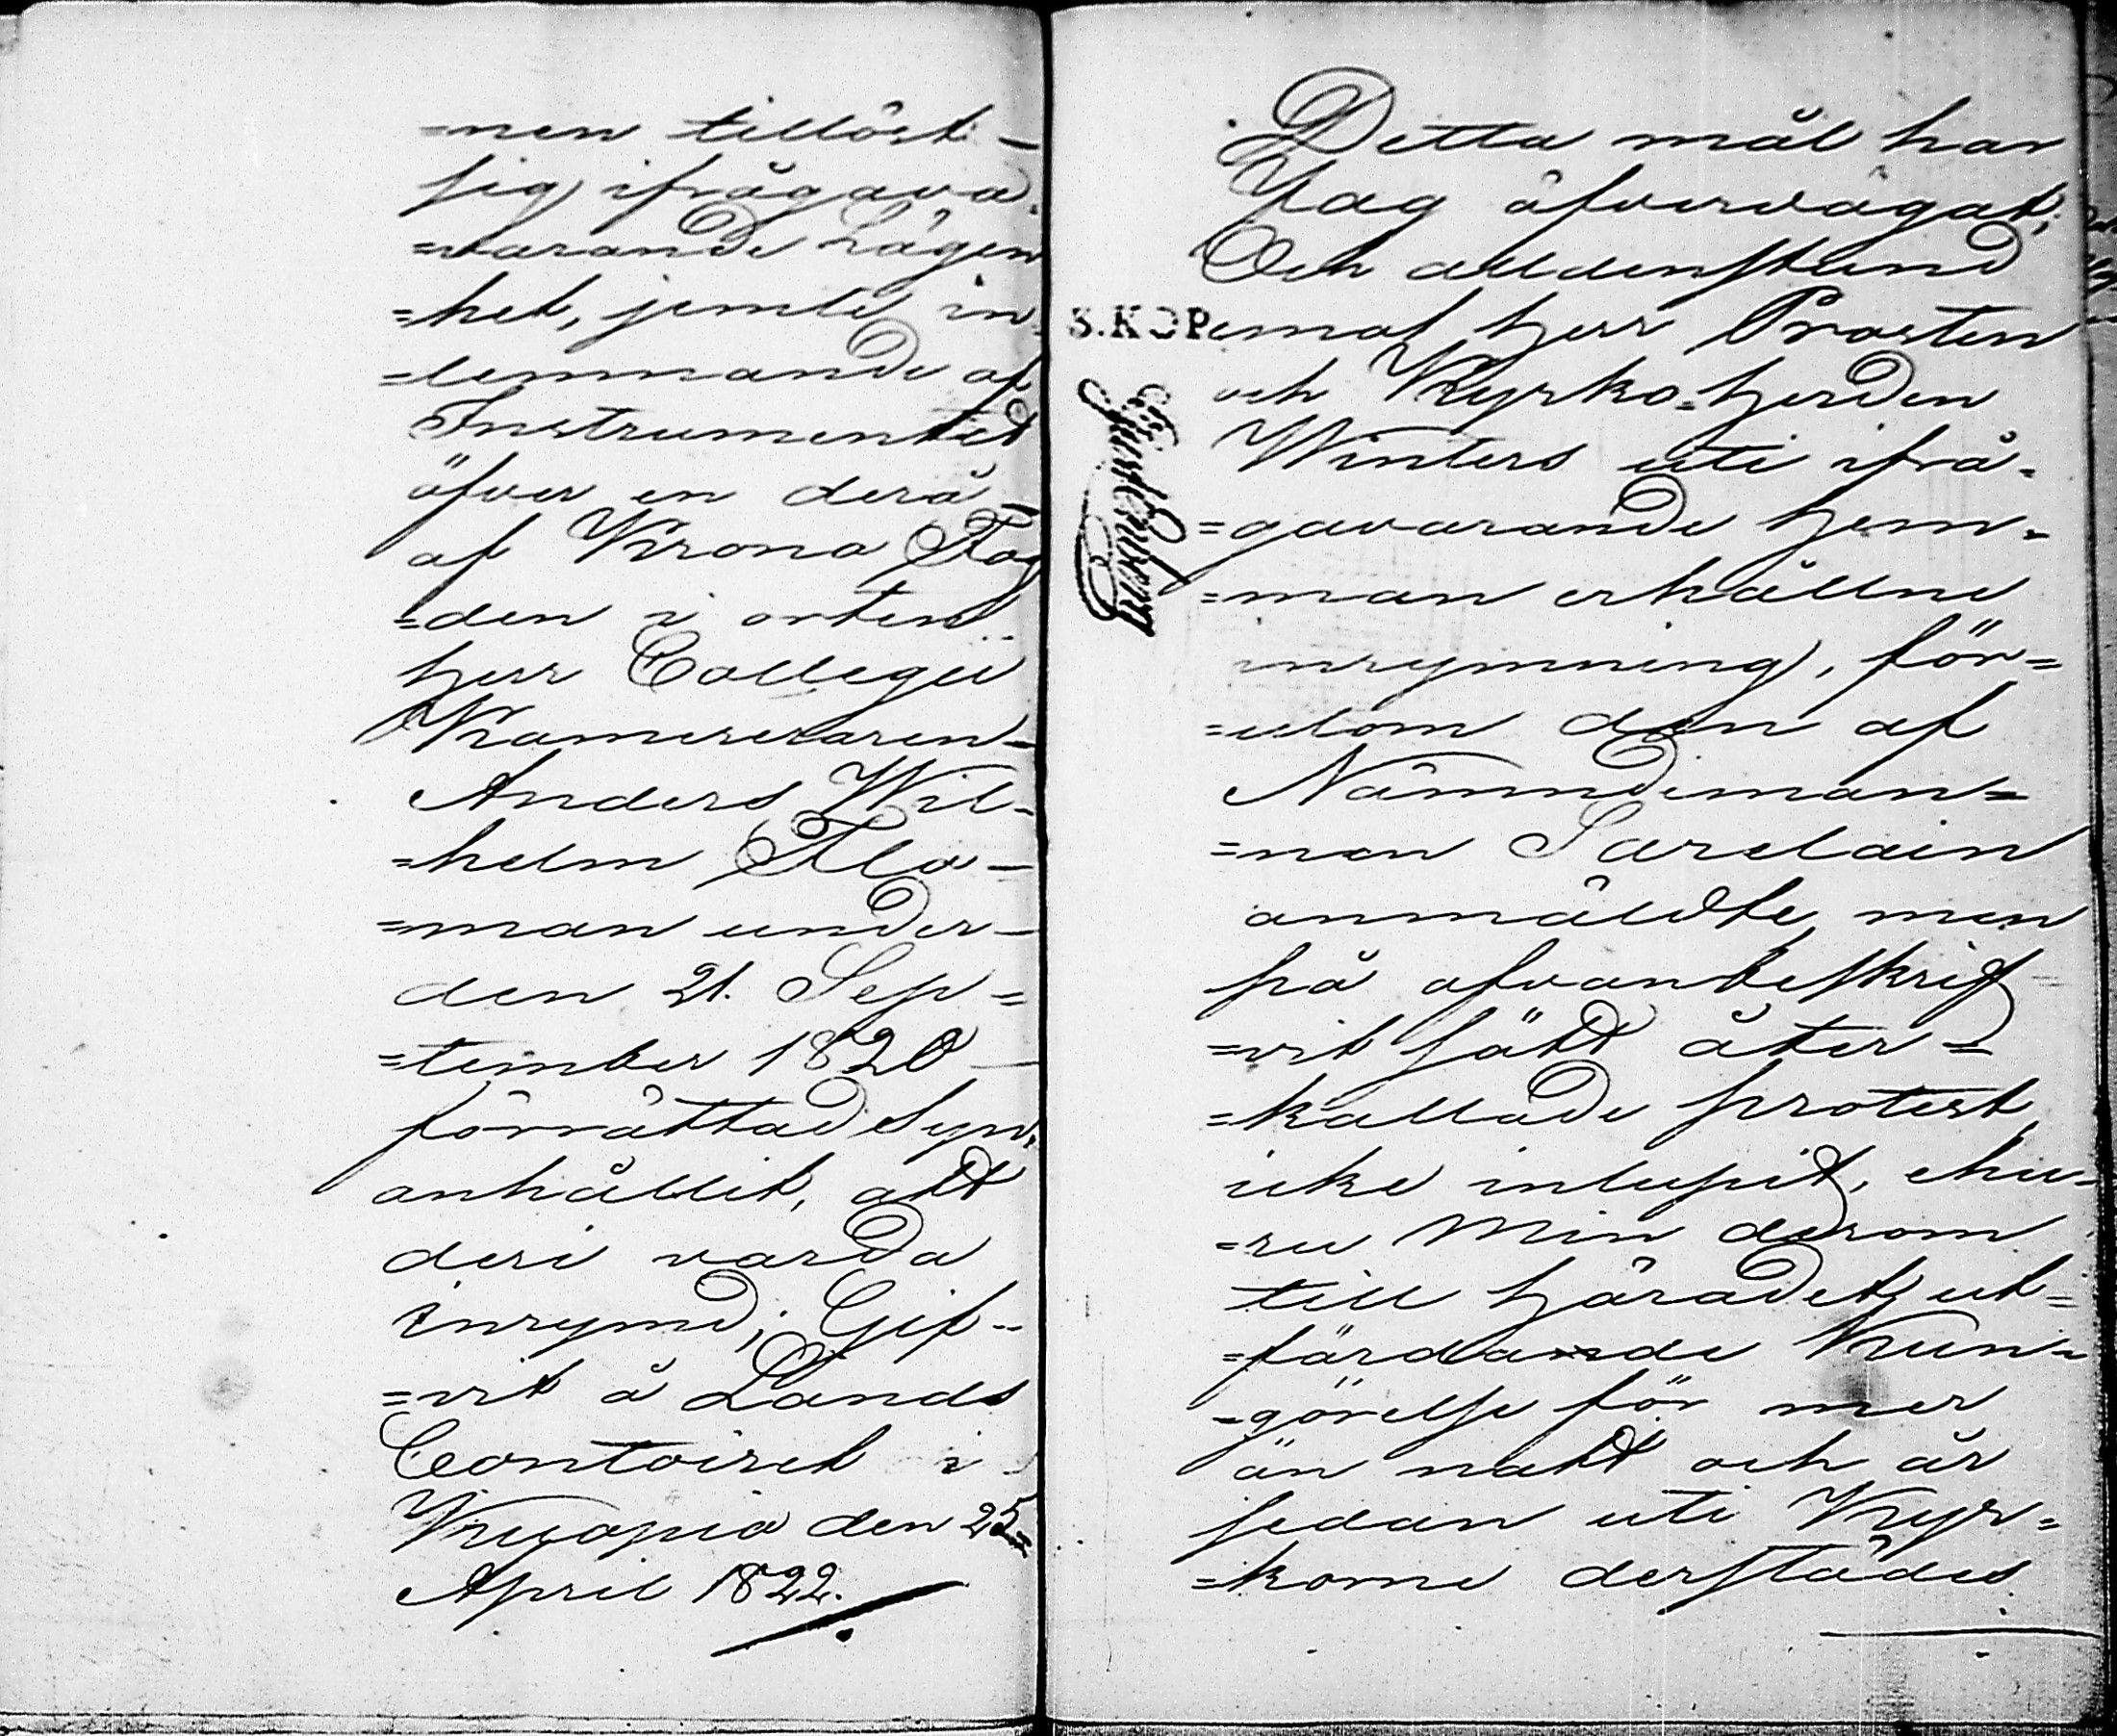 =nen tillöst
sig ifrågava
=varande Lägen
=het, jemte in
=lemnande af
Instrumentet
öfver en derå
af Krono Fog
=den i orten
Herr Collegii
Kamereraren
Anders Wil-
=helm Flo-
=man under
den 21. Sep=
=tember 1820
förrättad Syn,
anhållit, att
deri varda
inrymd; Gif-
=vit å Lands
Contoiret i
Kuopio den 25
April 1822.
Detta mål har
Jag öfvervägat;
Och alldenstund
S.KOP emot Herr Prosten
och Kyrko-Herden
Winters uti ifrå-
=gavarande Hem-
=man erhållne
inrymning, för=
=utom den af
Nämndeman=
=nen Sarelain
anmäldte, men
på ofvanbeskrif
=vit sätt åter=
=kallade protest
icke inlupit, ehu-
=ru Min derom
till Häradet ut=
=färdande Kun-
=görelse för mer
än natt och år
sedan uti Kyr=
=korne derstädes